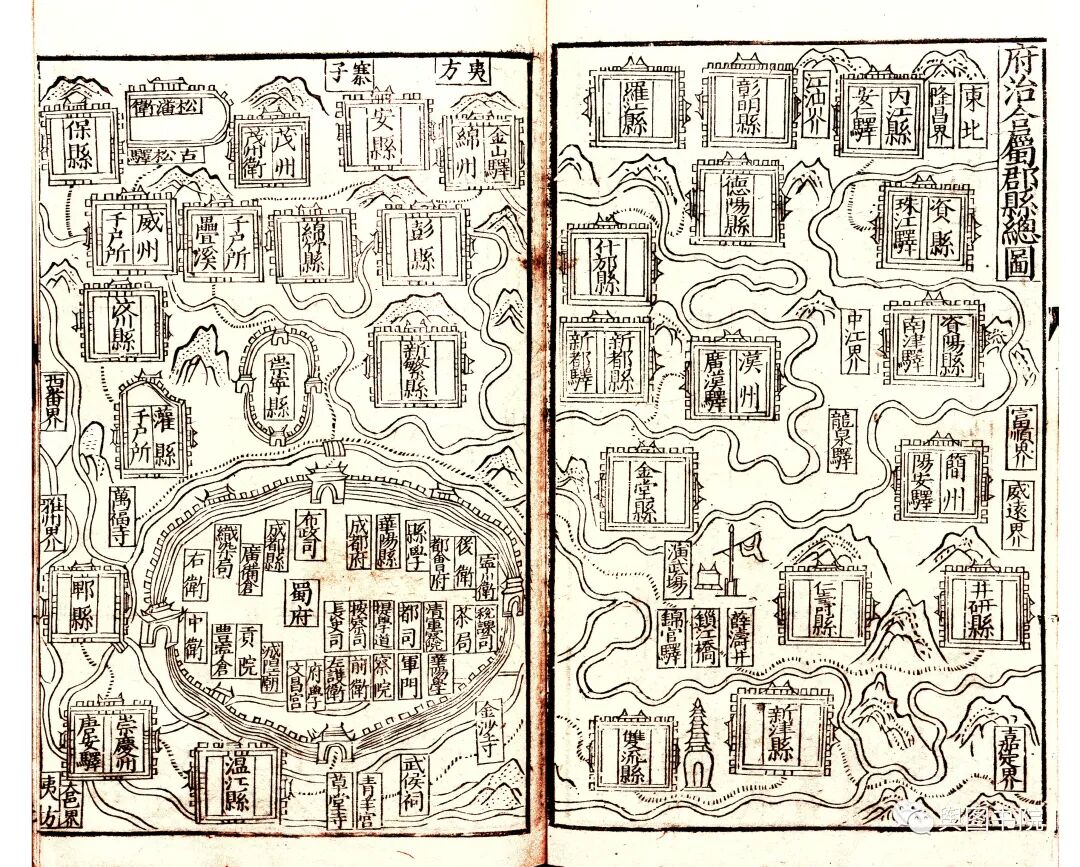 府治合屬郡縣總圖
東北
隆昌界
內江縣
安仁驛
江油界
彰明縣
羅江縣
資縣
珠江驛
德陽縣
什邡縣
資陽縣
南津驛
中江界
漢州
廣漢驛
新都縣
新都驛
富順界
威遠界
簡州
陽安驛
龍泉驛
金堂縣
井研縣
仁壽縣
演武場
薛濤井
鎖江橋
錦官驛
嘉定界
新津縣
雙流縣
夷方
寨子
金山驛
綿州
安縣
茂州
茂州衛
松潘衛
古松驛
保縣
彭縣
綿縣
千戶所
疊溪
威州
千戶所
新繁縣
崇寧縣
汶川縣
灌縣
千戶所
西番界
雅州界
萬福寺
郫縣
寧川衛
後衛
都會府
縣學
華陽縣
成都府
布政司
成都縣
廣備倉
織染司
右衛
蜀府
稅課司
茶局
清軍察院
都司
提學道
按察司
長史司
華陽學
軍門
察院
前衛
左護衛
府學
文昌宮
城隍廟
貢院
豐寧倉
中衛
金沙寺
武侯祠
青羊宮
草堂寺
溫江縣
崇慶州
唐安驛
大邑界
夷方
輿圖書院